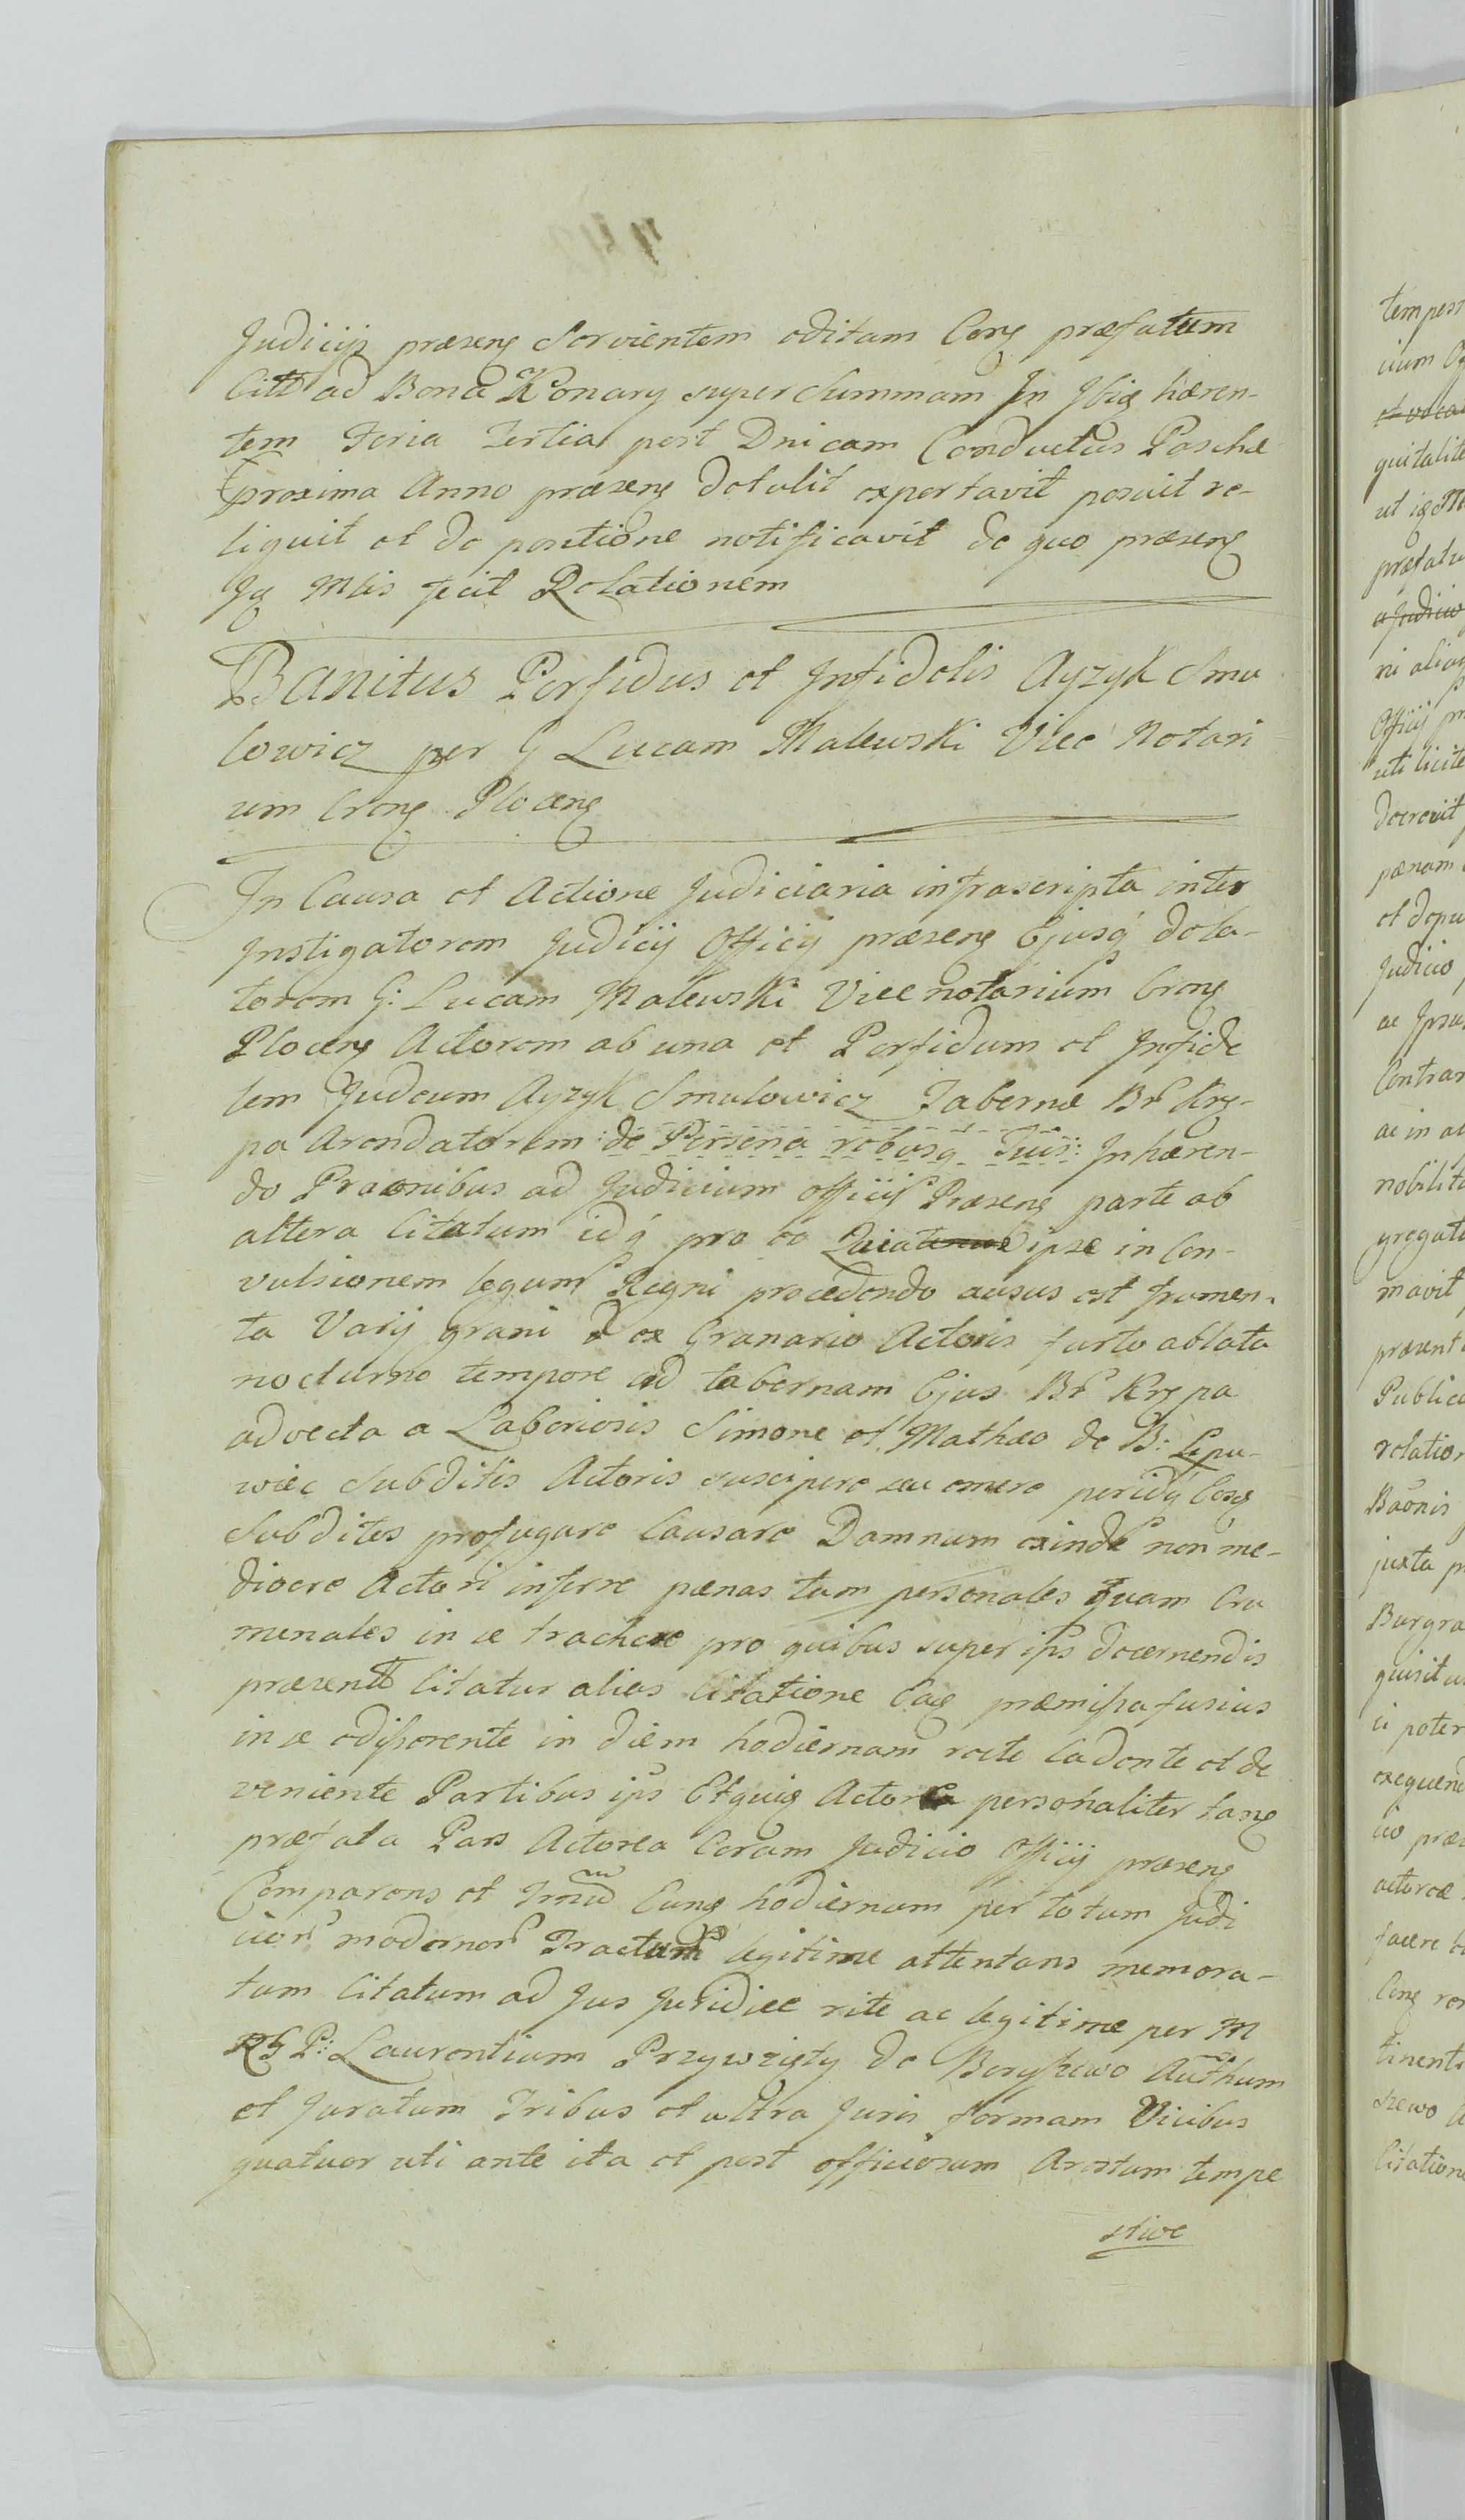 Judicijs præseng Servientem editam Cong præfatum
Citt ad Bona Konary super Summam In Ibiq hæren-
tem Feria Tertia post Dnicam Conductus Paschæ
proxima Anno præseng detulit exportavit posuit re-
liquit et de positione notificavit de quo præseng
Iq Mlis fecit Relationem
Banitus Perfidus et Infidelis Ayzyk Smu
lowicz per G Lucam Malewski Vice Notari
um Crong Plocæng
In Causa et Actione Judiciaria infrascripta inter
Instigatorem Judicij Officij præseng Ejusq dela-
torem G: Lucam Malewski Vicenotarium Crong
Ploceng Actorem ab una et Perfidum et Infide
lem Judæum Ayzyk Smulowicz Tabernæ Br Krę-
pa Arendatorem: de Persona rebusq Tuis: Inhæren-
do Præonibus ad Judicium officij Præseng parte ab
altera Citatum idq pro eo Quia ipse in Con-
vulsionem legum Regni procedendo ausus est frumen-
ta Varij grani ex Granario Actoris furto ablata
nocturno tempore ad tabernam Ejus Br Krępa
advecta a Laboriosis Simone et Mathæo de B: Lepu-
wiec Subditis Actoris suscipere seu emere peridq Eosq
Subditos profugare Causare Damnum exinde non me-
diocre Actori inferre pænas tam personales quam Cru
menales in se trachere pro quibus super ips decernendis
præsentt Citatur alias Citatione Eaq præmissa fusius
in se edisserente in diem hodiernam recte Cadente et de
veniente Partibus ips Etquiq Actorea personaliter tanq
præfata Pars Actorea Coram Judicio Officij præseng
Comparens et Trnum Eunq hodiernum per totum Judi
cior modernor Tractum legitime attentans memora-
tum Citatum ad Jus Juridice rite ac legitime per M
RG P: Laurentium Przywzięty de Boryszewo Authum
et Juratum Tribus et ultra Juris formam Vicibus
quatuor uti ante ita et post officiosum Arestum tempe
stive